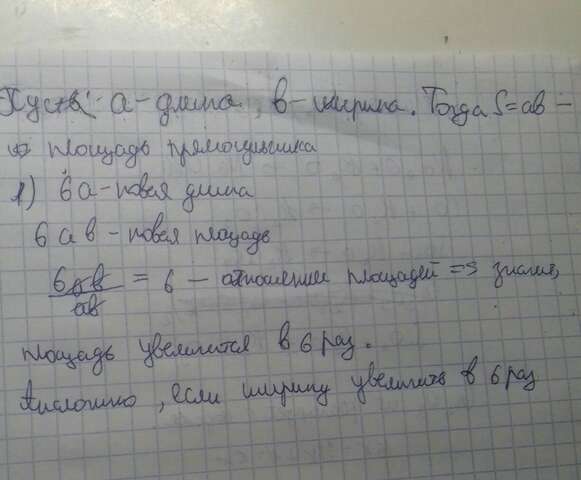 Пусть a - длина, b - ширина. Тогда S=ab -
площадь прямоугольника
1) 6a - новая длина
6ab - новая площадь
6ab/ab = 6 - отношение площадей => значит,
площадь увеличится в 6 раз.
Аналогично, если ширину увеличить в 6 раз